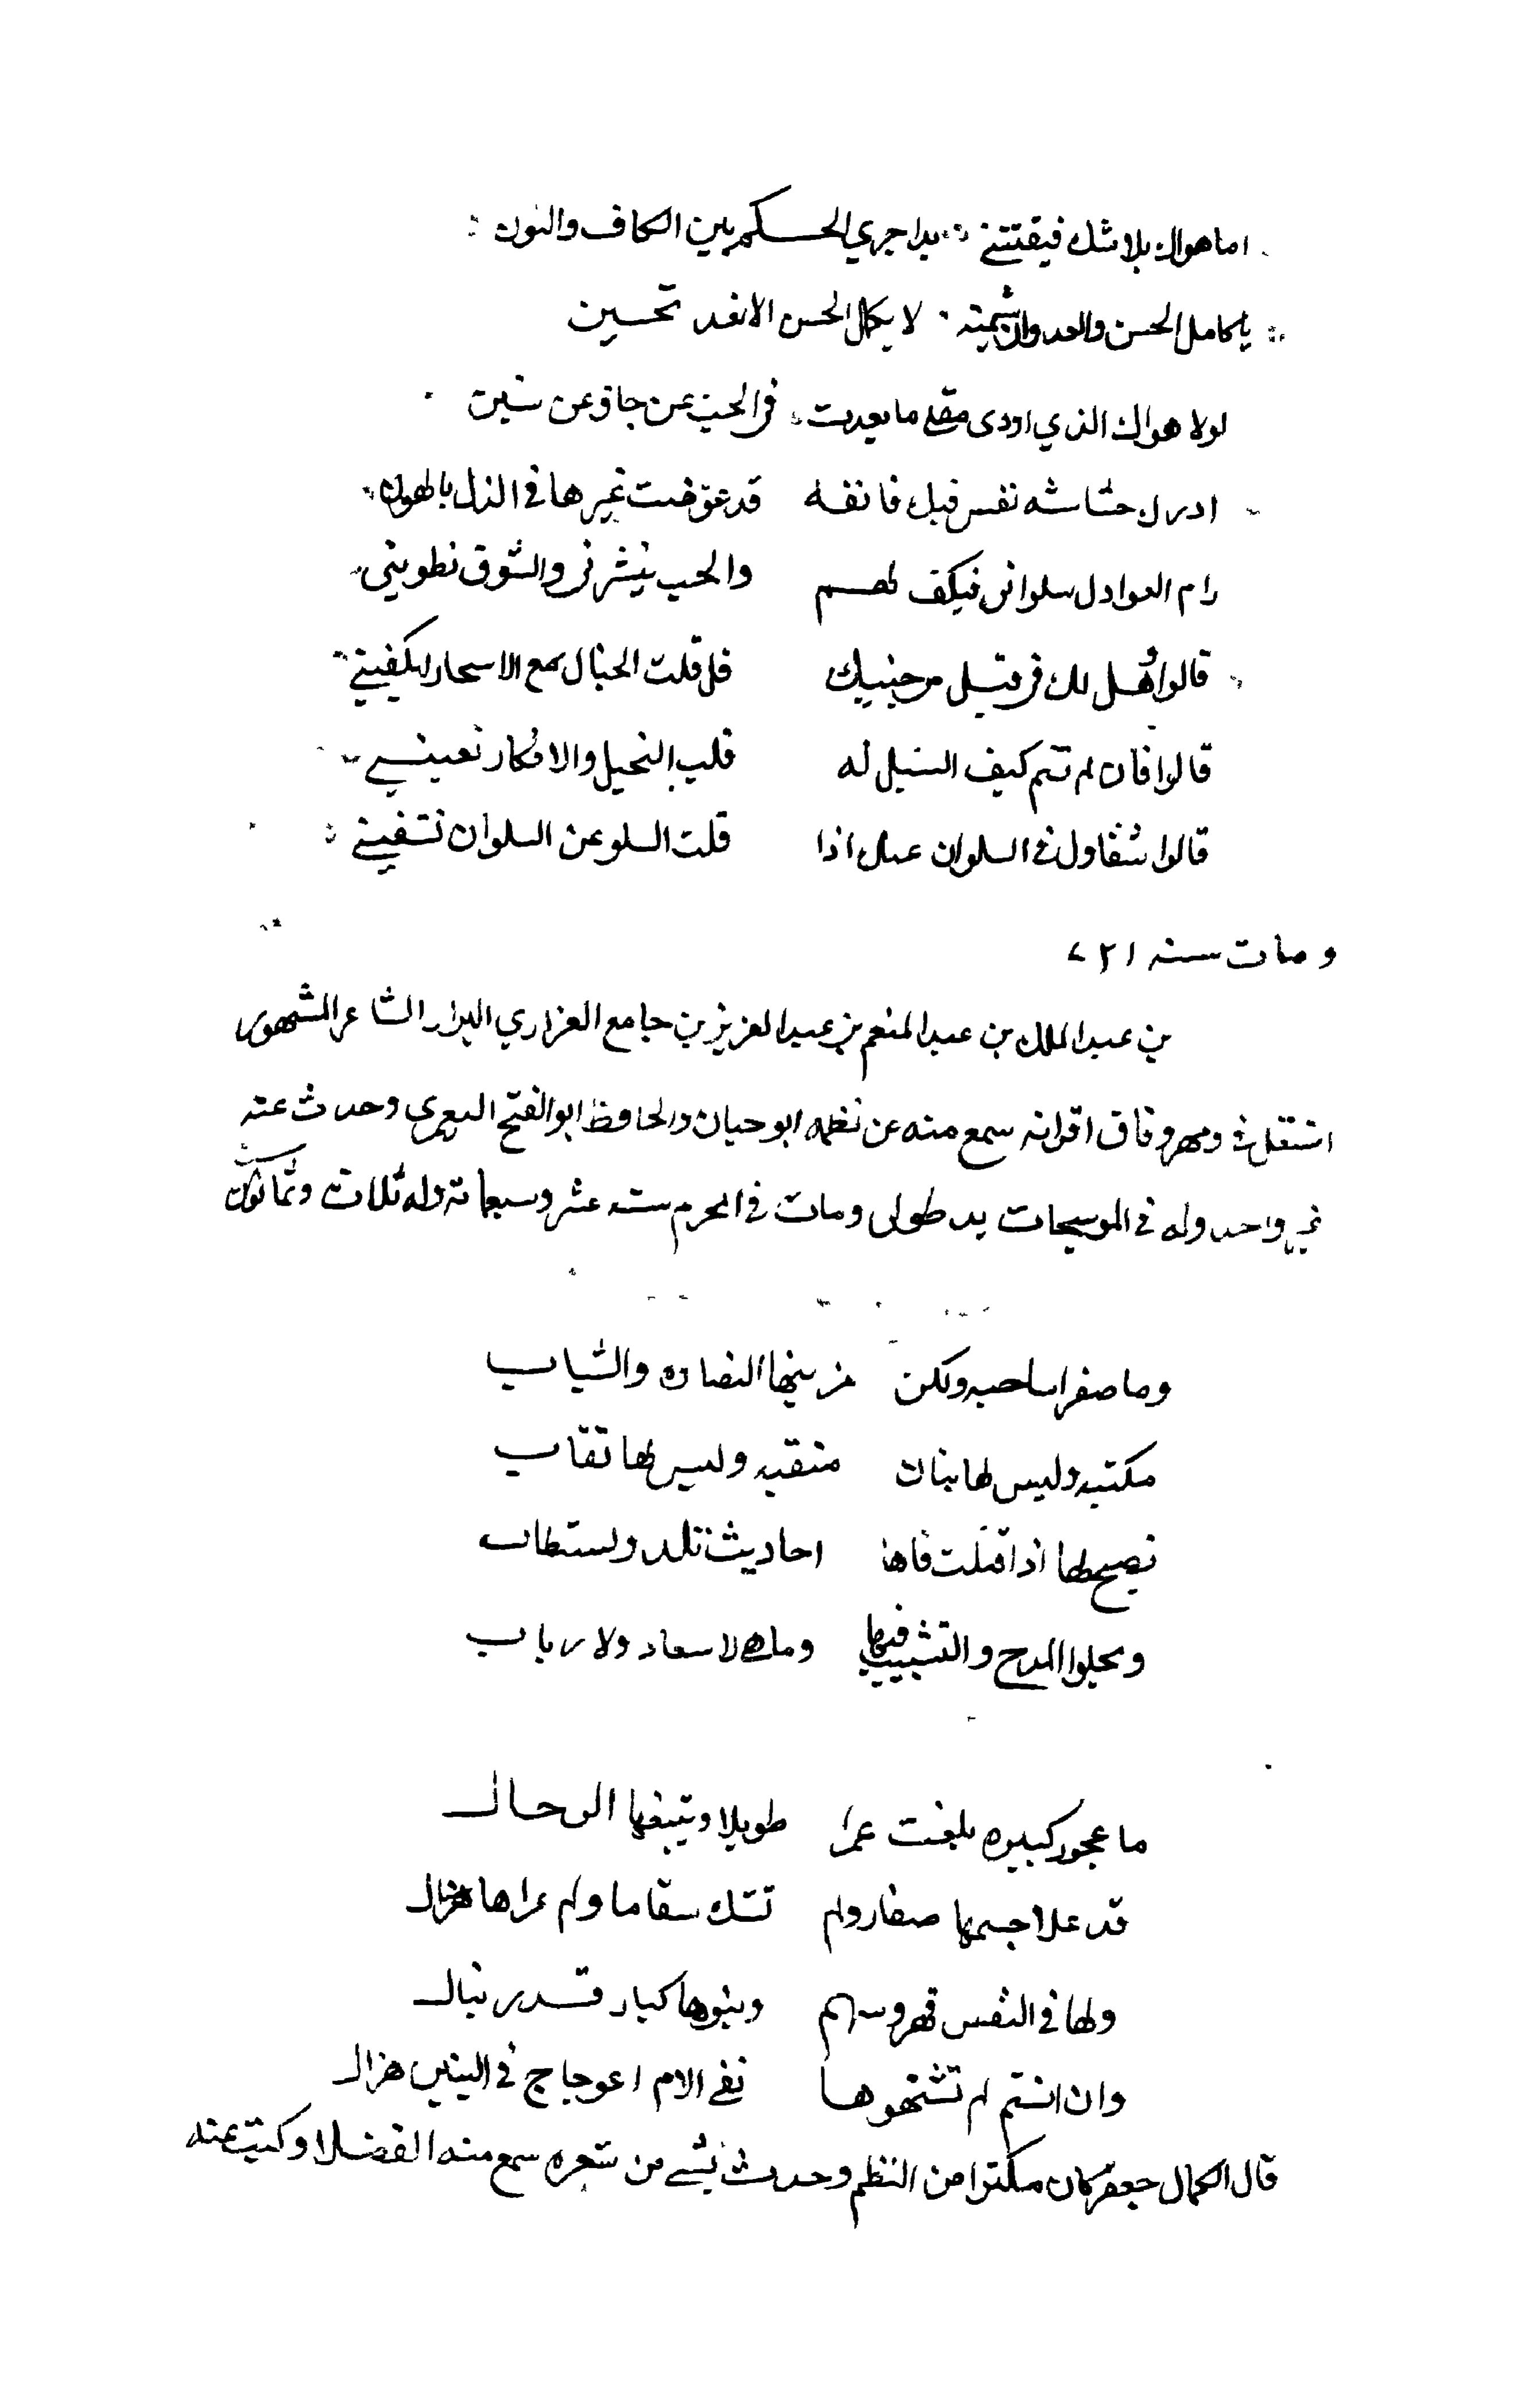 اما هواك بلا شك فيقتنني بدا جري الحكم بين الكاف والنون
يا كامل الحسن والعدوان شيمته لا يكمل الحسن الا بعد تحسين
لولا هواك الذي اودى مقلي ما بعدت في الحب عن جاوعن سين
ادرك حشاشه نفس قبل فانفه قد عوضت غيرها في الذل بالهون
رام العوادل سلواني فيكف لهم والحب ينشرني والشوق نطويني
قالوا هل لك في قتيل من حنينك قل قلت الخيال مع الاسحار يكفيني
قالوا فان لم تنم كيف السبيل له قلب النحيل والافكار تعينني
قالوا شفاول في السلوان عنك اذا قلت السلو عن السلوان تشفيني
ومات سنه ٧٢١
بن عبد الملك بن عبد المنعم بن عبد العزيز بن جامع العزازي البزاز الشاعر المشهور
اشتغل ومهر وفاق اقرانه سمع منه عن نظمه ابو حيان والحافظ ابو الفتح اليعمري وحدث عنه
غير واحد وله في الموشحات يد طولى ومات في المحرم سنه عشر وسبعمائة وله ثلاث وثمانون
وما صفرا ساحبه ولكن يزينها النضاره والشباب
مكتبه وليس لها بنان منقبه وليس لها نقاب
نصيح لها اذا قبلت فاها احاديث تلذ وتستطاب
ويحلوا المدح والتشبيب فيها وما هي لا سعاد ولا رباب
ما عجوز كبيره بلغت عمرا طويلا وتبتغيها الرجال
قد علا جسمها صفار ولم تشك سقاما ولم عراها هزال
ولها في النفس قهر وسهم وبنوها كبار قدر نبال
وان انتم لم تشتهوها ففي الام اعوجاج في البنين هزال
قال الكمال جعفر كان مكثرا من النظم وحدث بشي من شعره سمع منه الفضلا وكتب عنه